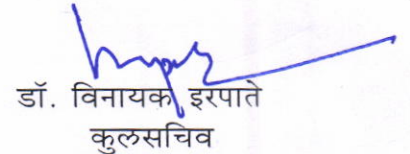 डॉ. विनायक इरपाते
कुलसचिव